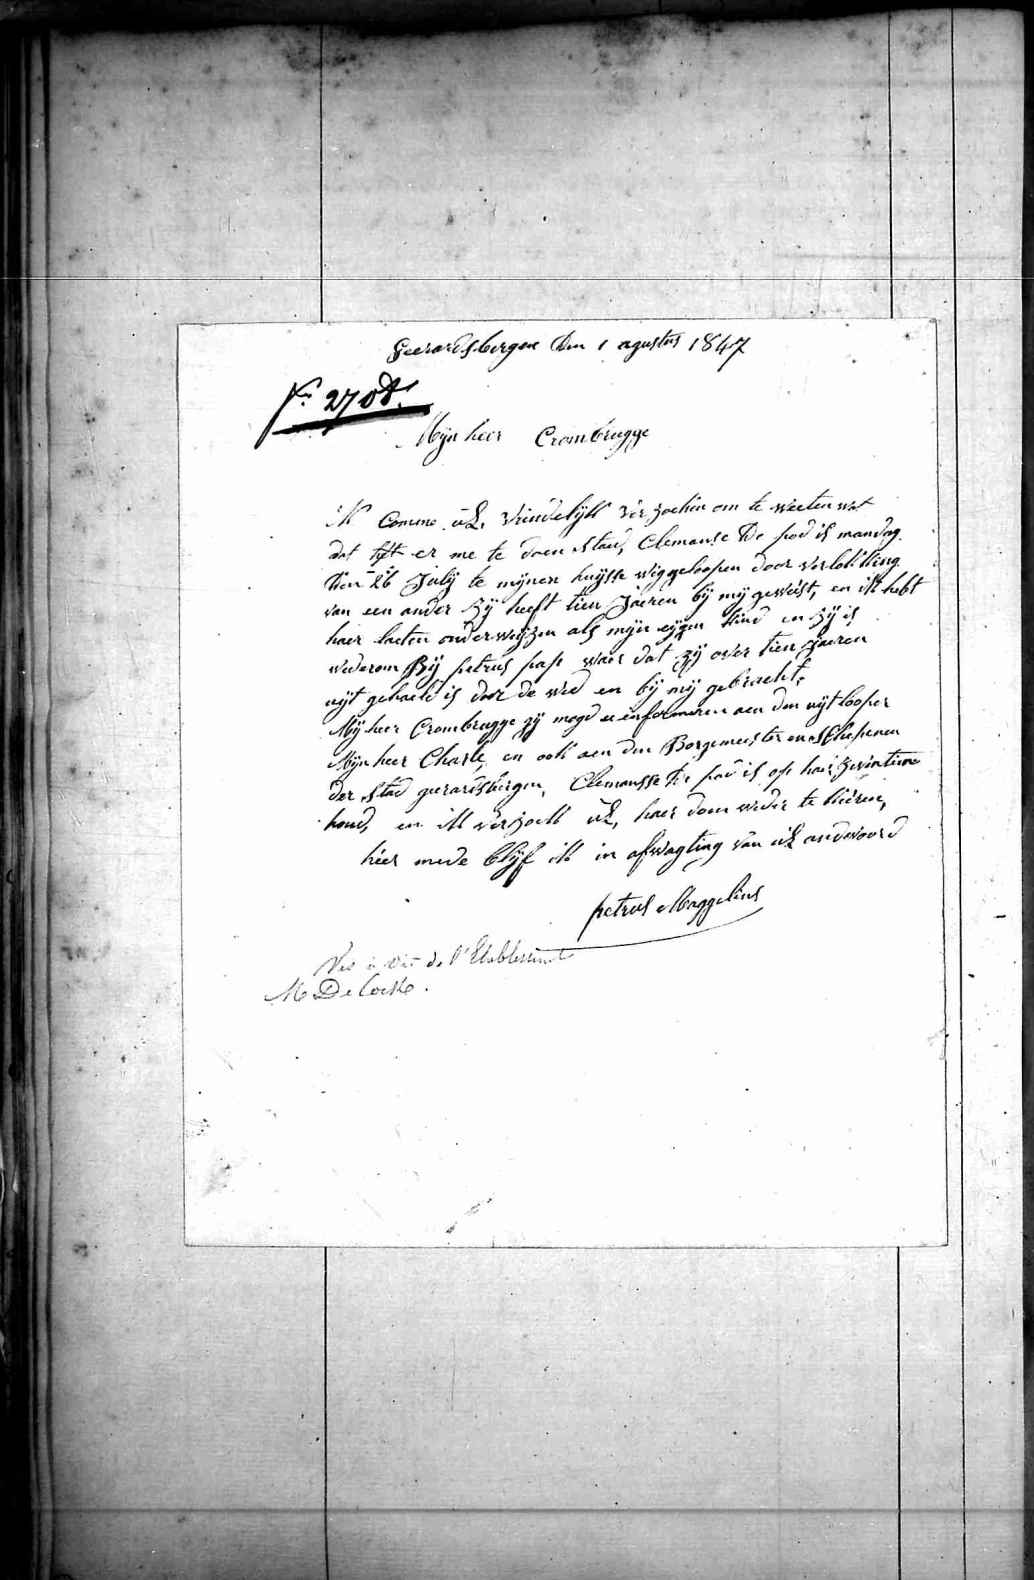 geerardsbergen den 1 agustus 1847
Nr. 2708.
Mijn heer Crombrugge
ik comme uE. vriendelijk verzoeken om te weeten wat
dat er me te doen staed, Clemanse De is mandag
den 26 Julij te mijnen huijsse wiggeloopen door verlokking
van een ander zij heeft tien Jaeren bij mij geweist, en ik hebt
haer laeten onderweijzen als mijn eijgen kind en zij is
wederom Bij petrus pape waer dat zij over tien Jaeren
uijt gehaelt is door de wed en bij mij gebracht,
Mijheer Crombrugge zij mogd u informeren aen den uijtlooper
Mijn heer Charle, en ook aen den Borgemeester en schepenen
der stad gerardsbergen, Clemansse De is op haer
houd, en ik verzoek uE, haer doen weder te kieren,
hier mede blijf ik in afwagting van uE andwoord
petrus Maggelins
Vis à vis de l'Etablissement
M De Cock.